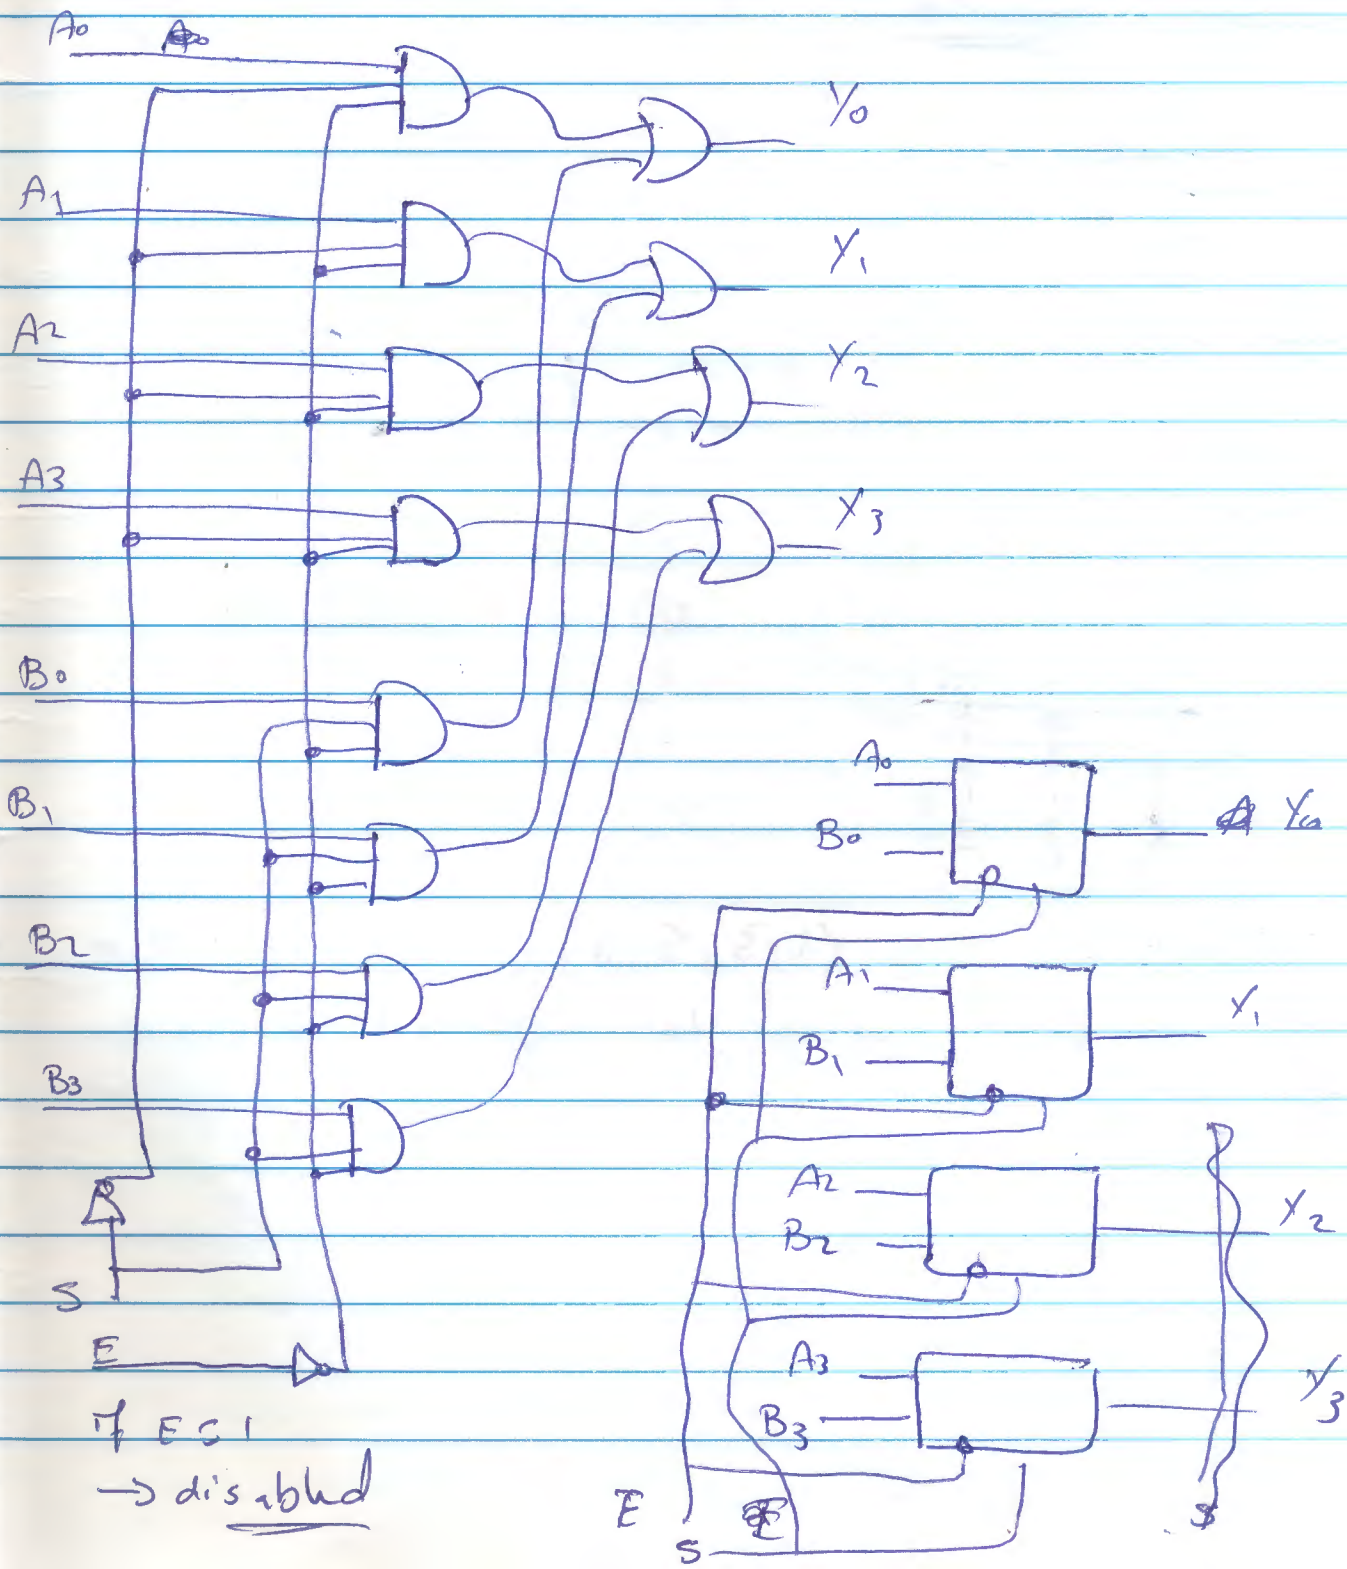 A0
Y0
A1
Y1
A2
Y2
A3
Y3
B0
B1
B2
B3
S
E
If E = 1
→ disabled
A0
B0
Y0
A1
B1
Y1
A2
B2
Y2
A3
B3
Y3
E
S